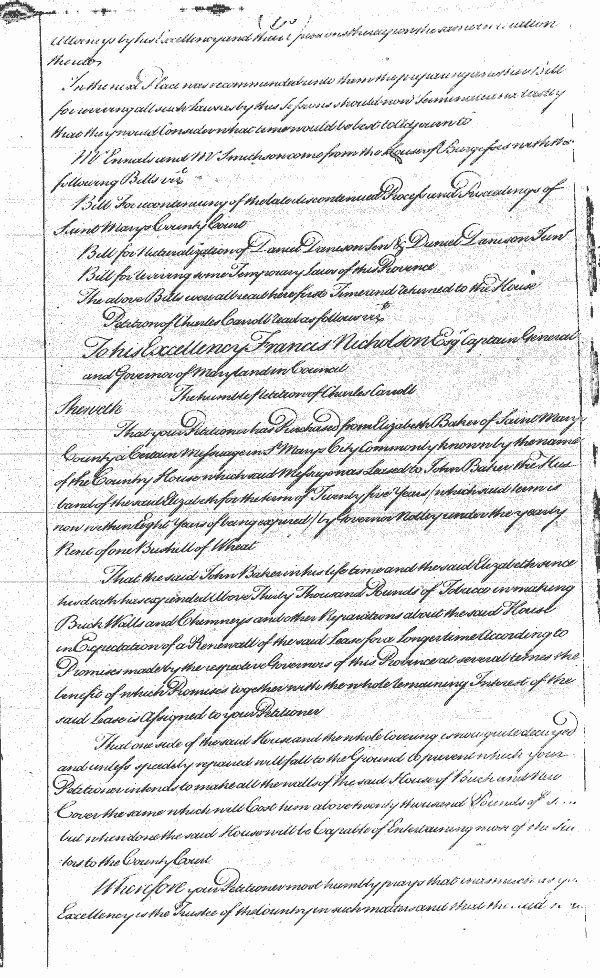 Attorneys by his Excellency and their persons thereupon the same
thereto
In the next Place was recommended unto them the preparing another Bill
for reviving all such Laws as by this Sessions should now
that they would Consider what time would be best to Adjourn to
Mr Ennals and Mr Smithson come from the House of Burgesses with the
following Bills vizt
Bill For a continuency of the late discontinued Process and Proceedings of
Saint Marys County Court
Bill for Naturalization of Daniel Danison Senr & Daniel Danison Junr
Bill for reviving some Temporary Laws of this Provence
The above Bills were all read here first Time and returned to the House
Petition of Charles Carroll read as follows vizt
To his Excellency Francis Nicholson Esqr Captain General
and Governor of Maryland in Council
The humble Petition of Charles Carroll
Sheweth
That your Petitioner has Purchased from Elizabeth Baker of Saint Marys
County a Certain Messuage in St Marys City Commonly known by the name
of the Country House which said Messuage was Leased to John Baker the Hus
band of the said Elizabeth for the term of Twenty five Years /which said term is
now within Eight Years of being expired/ by Governor Notley under the yearly
Rent of one Bushell of Wheat
That the said John Baker in his life time and the said Elizabeth since
his death has expended Above Thirty Thousand Pounds of Tobacco in making
Brick Walls and Chimneys and other Reparations about the said House
in Expectation of a Renewall of the said Lease for a Longer time According to
Promises made by the respective Governors of this Province at several times the
benefit of which Promises together with the whole remaining Interest of the
said Lease is Assigned to your Petitioner
That one side of the said House and the whole Covering is now quite decayed
and unless speedily repaired will fall to the Ground to prevent which your
Petitioner intends to make all the walls of the said House of Brick and New
Cover the same which will Cost him above twenty thousand Pounds of
but when done the said House will be Capable of Entertaining most of the Sui
tors to the County Court
Wherefore your Petitioner most humbly prays that inasmuch as
Excellency is the Trustee of the Country in such matters and that the said